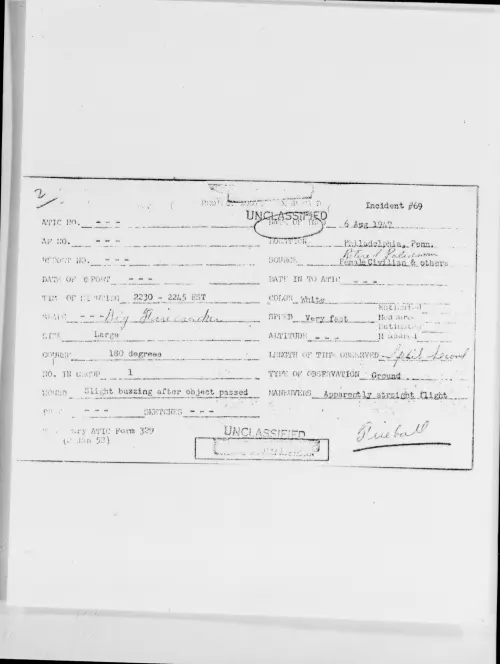 2
Incident #69
UNCLASSIFIED
ATIC NO. - - - DATE OF 6 Aug 1947
AF NO. - - - LOCATION Philadelphia, Penn.
Retired Policeman
REPORT NO. - - - SOURCE Female Civilian & others
DATE OF REPORT - - - DATE IN TO ATIC - - -
TIME OF SIGHTING 2230 - 2245 EST COLOR White
SHAPE - - - Big Firecracker SPEED Very fast
SIZE Large ALTITUDE - - -
COURSE 180 degrees LENGTH OF TIME OBSERVED Split Second
NO. IN GROUP 1 TYPE OF OBSERVATION Ground
SOUND Slight buzzing after object passed MANEUVERS Apparently straight flight
- - - SKETCHES - - -
ATIC Form 329 UNCLASSIFIED Fireball
(2 Jan 52)